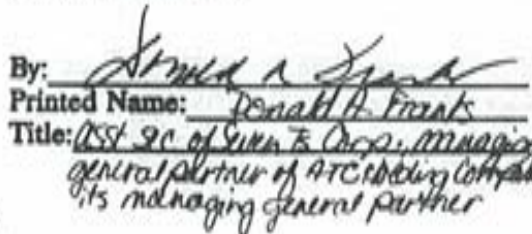 By: Donald A Franks
Printed Name: Donald A. Franks
Title: Asst Sec of Seven J's Corp., managing
general partner of ATC Holding Compan
its managing general partner